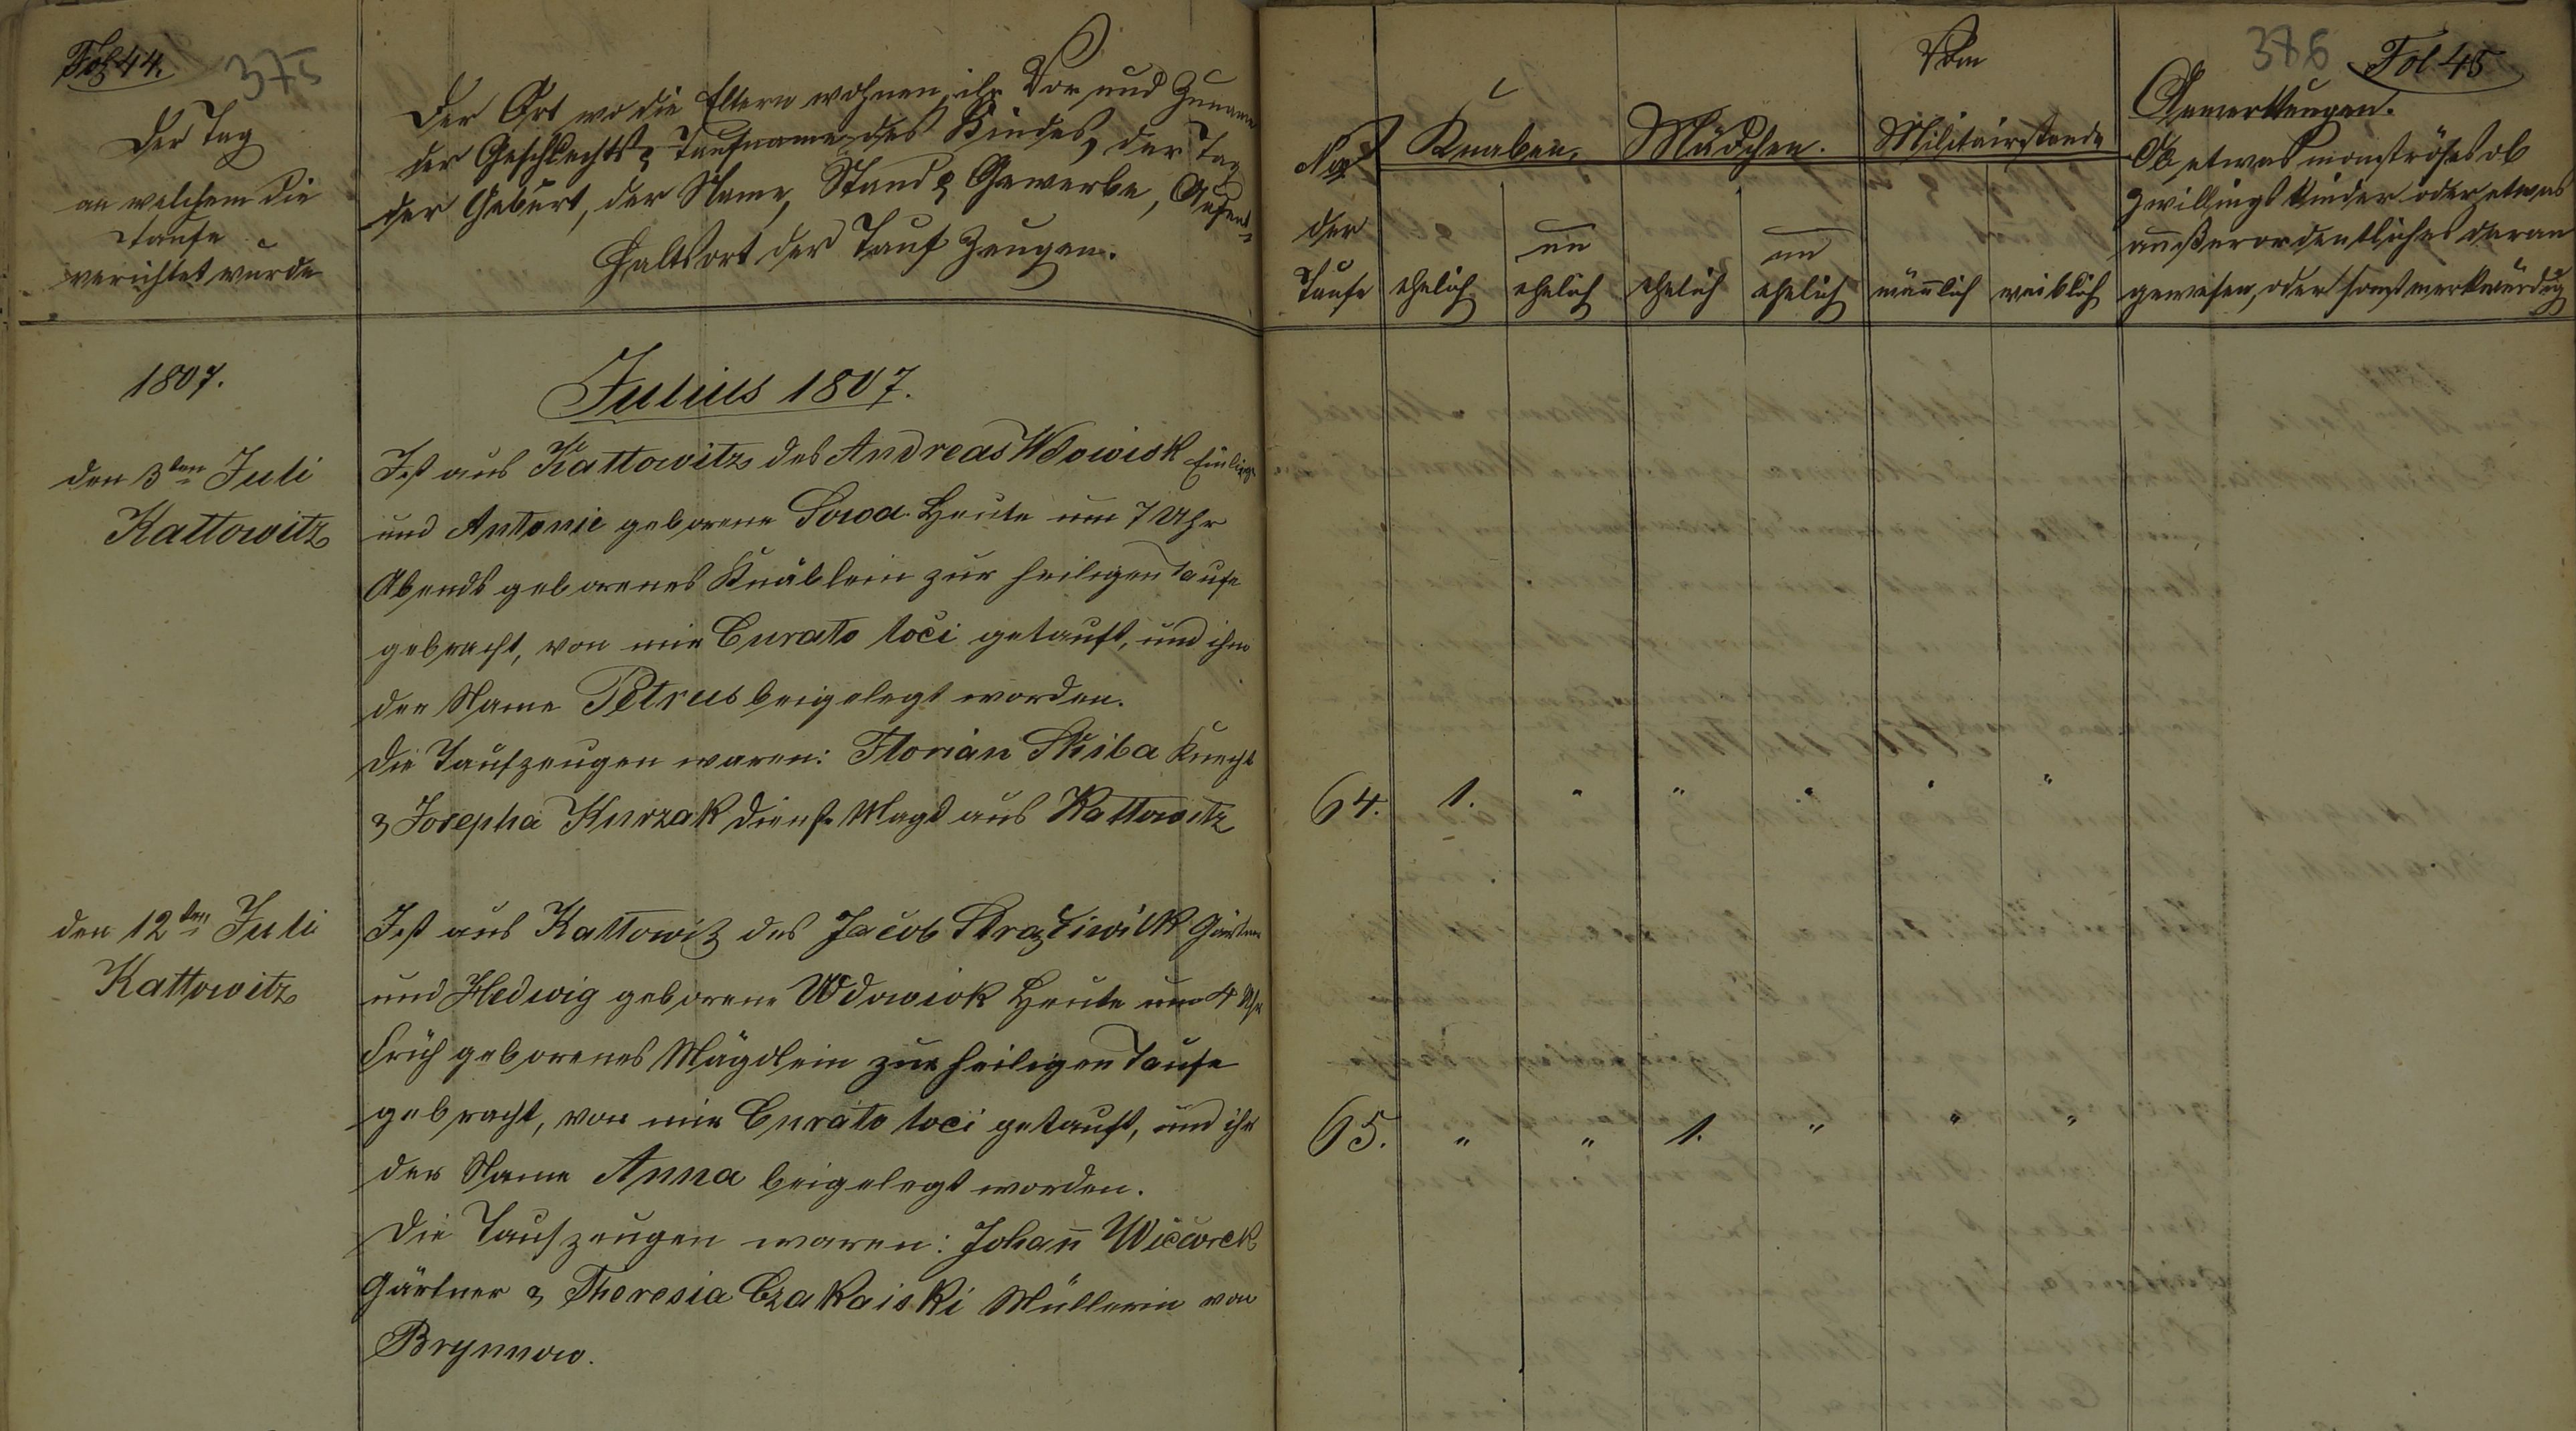 Fol 44. 375
Der Tag
an welchem die
Taufe
verichtet wurde
Der Ort wo die Eltern wohnen, ihr Vor und Zuname
der Geschlechts & Taufname des Kindes, der Tag
der Geburt, der Name, Stand & Gewerbe, Aufent-
haltsort der Tauf Zeugen.
1807.
Julius 1807.
den 3ten Juli
Kattowitz
Ist aus Kattowitz des Andreas Wdowiok Einlieger
und Antonie geborene Sowa Heute um 7 Uhr
Abends geborenes Knäblein zur heiligen Taufe
gebracht, von mir Curato loci getauft, und ihm
der Name Petrus beigelegt worden.
Die Taufzeugen waren: Florian Skiba Knecht
& Josepha Kurzak Dienst Magd aus Kattowitz
den 12ten Juli
Kattowitz
Ist aus Kattowitz des Jacob Gärtner
und Hedwig geborene Wdowiok Heute um 4 Uhr
Früh geborenes Mägdlein zur heiligen Taufe
gebracht, von mir Curato loci getauft, und ihr
der Name Anna beigelegt worden.
Die Taufzeugen waren: Johañ Wieĉorek
Gärtner & Theresia Czakaiski Müllerin von
Brynnow.
376 Fol 45
Nro
der
Taufe
Knaben,
ehelich
un
ehelich
Mädchen.
ehelich
un
ehelich
Vom
Militairstande
mäñlich weiblich
Bemerkungen.
Ob etwas monströses ob
Zwillings Kinder oder etwas
außerordentliches daran
gewesen, oder sonst merkwürdig
64. 1. " " " " "
65. " " 1. " " "